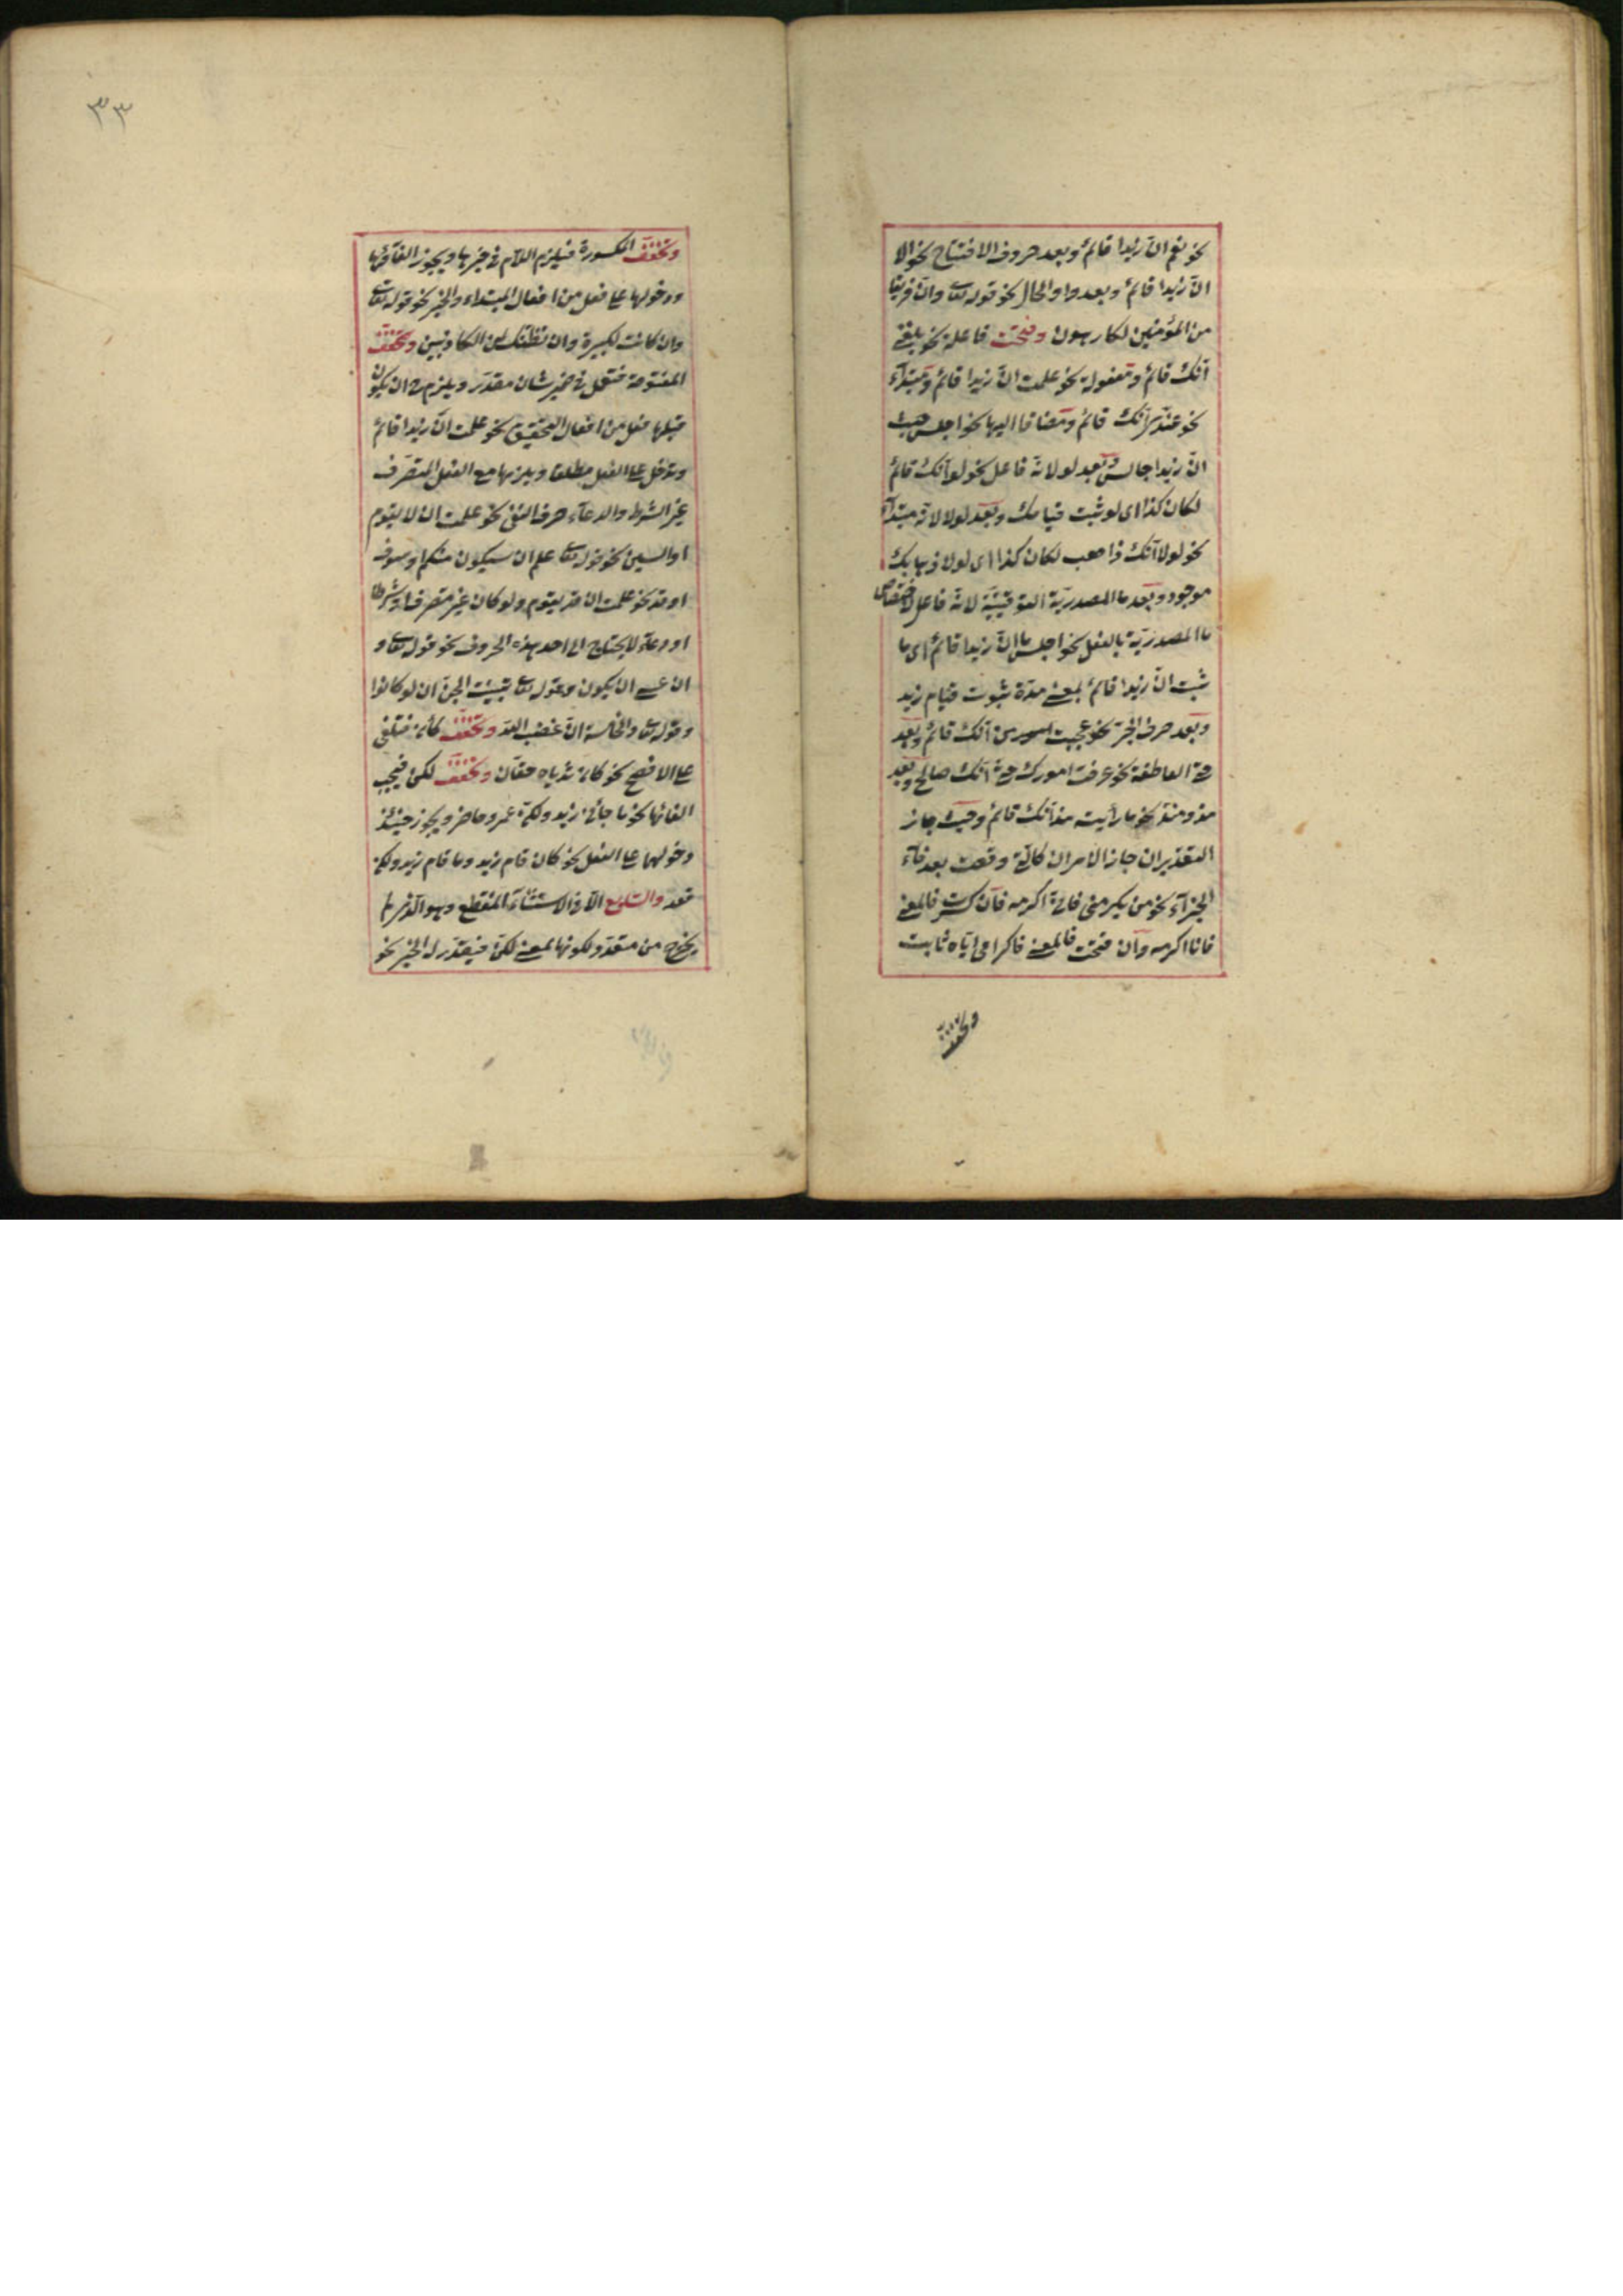 نحو نعم ان زيدا قائم وبعد حروف الافتتاح نحو الا
ان زيدا قائم وبعد واو الحال نحو قوله تعا وان فريقا
من المؤمنين لكارهون وفتحت فاعلة نحو بلغني
انك قائم ومفعولة نحو علمت ان زيدا قائم ومبتدأء
نحو عندي انك قائم ومضافا اليها نحو اجلس حيث
ان زيدا جالس وبعد لو لانه فاعل نحو لو انك قائم
لكان كذا اى لو ثبت قيامك وبعد لولا لانه مبتدأ
نحو لولا انك ذاهب لكان كذا اى لولا ذهابك
موجود وبعد ما المصدرية التوقيتية لانه فاعل لاختصاص
ما المصدرية بالفعل نحو اجلس ما ان زيدا قائم اى ما
ثبت ان زيدا قائم بمعنى مدة ثبوت قيام زيد
وبعد حرف الجر نحو عجبت من انك قائم وبعد
حتى العاطفة نحو عرفت امورك حتى انك صالح وبعد
مذ ومنذ نحو ما رأيت مذ انك قائم وحيث جاز
التقديران جاز الامران كالتى وقعت بعد فاء
الجزاء نحو من يكرمنى فانى اكرمه فان كسرت فالمعنى
فانا اكرمه وان فتحت فالمعنى فاكرامى اياه ثابت
وتخفف
٣٣
وتخفف المكسورة فيلزم اللام فى خبرها ويجوز الغاؤها
ودخولها على فعل من افعال المبتداء والخبر نحو قوله تعا
وان كانت لكبيرة وان نظنك لمن الكاذبين وتخفف
المفتوحة فتعمل فى ضمير شان مقدر ويلزم ح ان يكون
قبلها فعل من افعال التحقيق نحو علمت ان زيدا قائم
وتدخل على الفعل مطلقا ويلزمها مع الفعل المتصرف
غير الشرط والدعاء حرف النفى نحو علمت ان لا يقوم
او السين نحو قوله تعا علم ان سيكون منكم او سوف
او قد نحو علمت ان قد يقوم ولو كان غير متصرف او شرطا
او دعاء لا يحتاج الى احد هذه الحروف نحو قوله تعا و
ان عسى ان يكون وقوله تعا تبينت الجن ان لو كانوا
وقوله تعا والخامسة ان غضب الله وتخفف كأن فتلغى
على الافصح نحو كان ثدياه حقان وتخفف لكن فيجب
الغائها نحو ما جائنى زيد ولكن عمرو حاضر ويجوز حينئذ
دخولهما على الفعل نحو كان قام زيد وما قام زيد ولكن
قعد والسابع الا فى الاستثناء المنقطع وهو الذى لم
يخرج من متعدد لكونها بمعنى لكن فيقدر له الخبر نحو